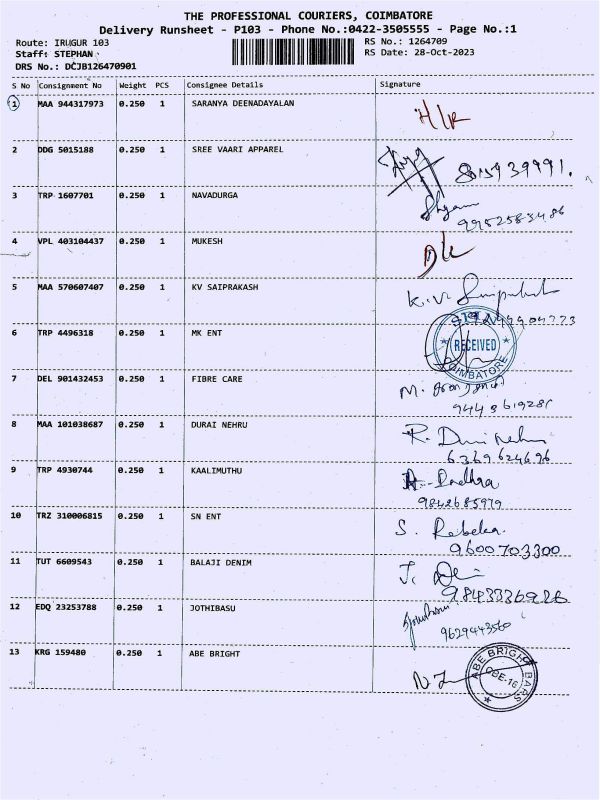 THE PROFESSIONAL COURIERS, COIMBATORE
Delivery Runsheet - P103 - Phone No.:0422-3505555 - Page No.:1
Route: IRUGUR 103 RS No.: 1264709
Staff: STEPHAN RS Date: 28-Oct-2023
DRS No.: DCJB126470901
S No Consignment No Weight PCS Consignee Details Signature
1 MAA 944317973 0.250 1 SARANYA DEENADAYALAN
2 DDG 5015188 0.250 1 SREE VAARI APPAREL
3 TRP 1607701 0.250 1 NAVADURGA Shyam
9952583486
4 VPL 403104437 0.250 1 MUKESH
5 MAA 570607407 0.250 1 KV SAIPRAKASH K.V. Saiprakash
6 TRP 4496318 0.250 1 MK ENT RECEIVED
COIMBATORE
7 DEL 901432453 0.250 1 FIBRE CARE M.
8 MAA 101038687 0.250 1 DURAI NEHRU R. Durai Nehru
6369624696
9 TRP 4930744 0.250 1 KAALIMUTHU
9842685979
10 TRZ 310006815 0.250 1 SN ENT S. Rebeka.
9600703300
11 TUT 6609543 0.250 1 BALAJI DENIM J.
9843336926
12 EDQ 23253788 0.250 1 JOTHIBASU
9629443560
13 KRG 159480 0.250 1 ABE BRIGHT ABE BRIGHT BARS
CBE-16